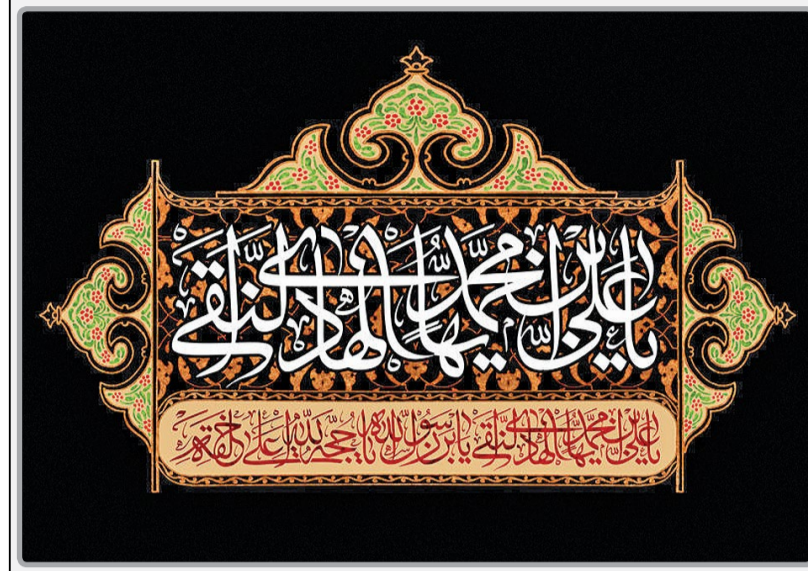 یا علی بن محمد ایها الهادی النقی
یا علی بن محمد ایها الهادی النقی یا بن رسول الله یا حجة الله علی خلقه